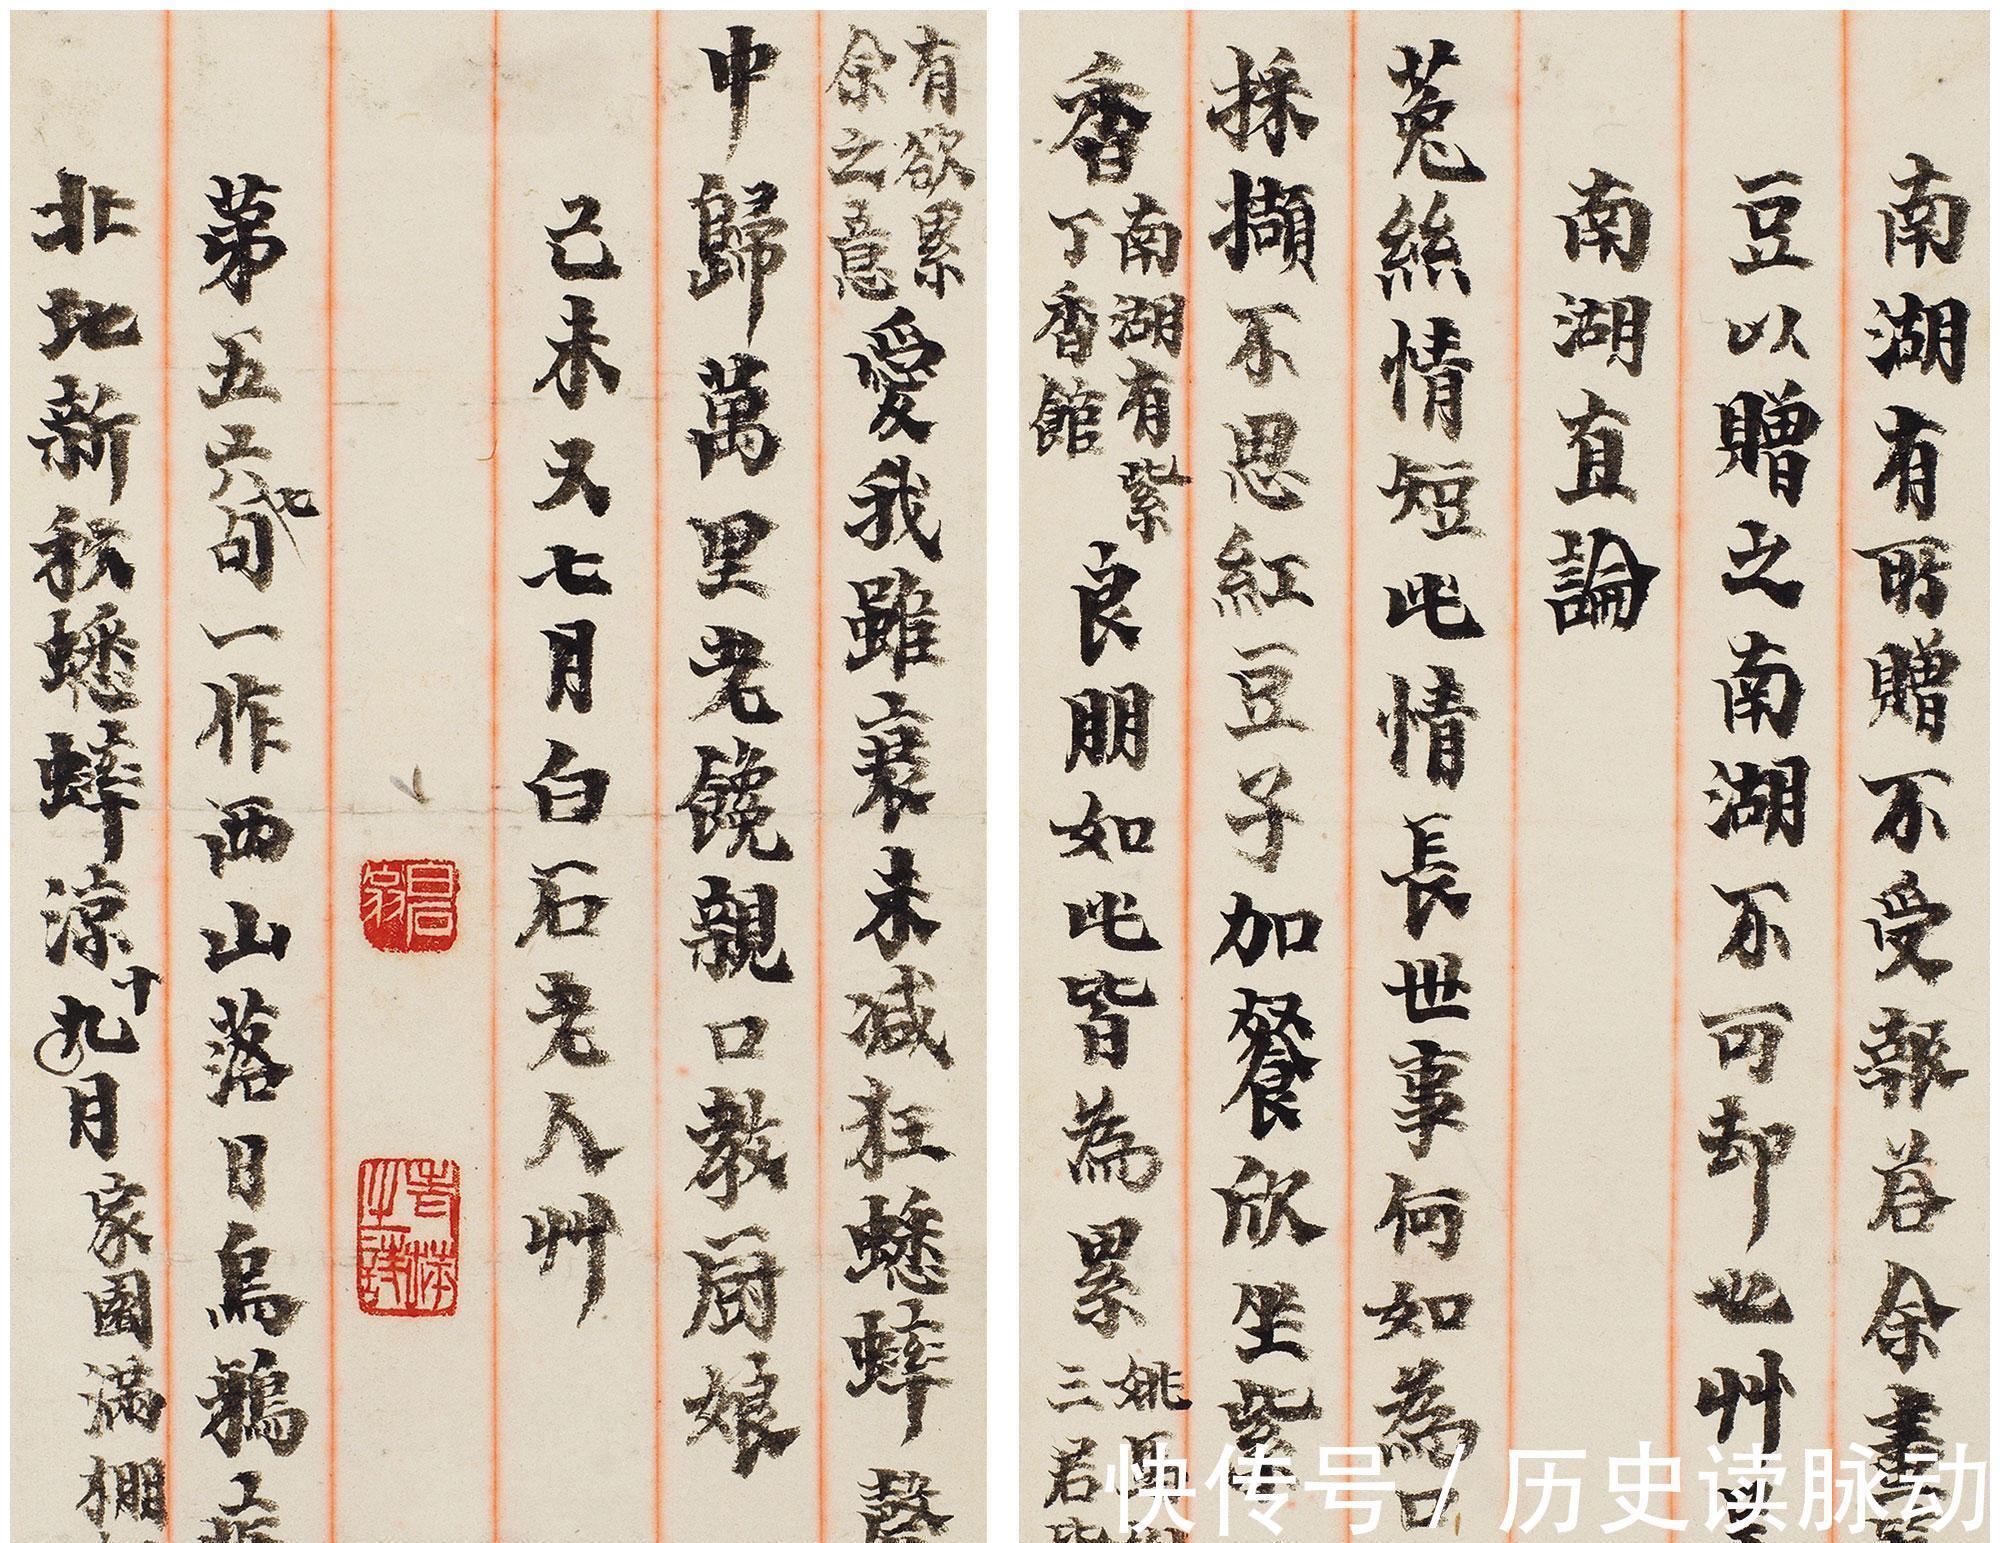 南湖有所贈不受報若余書
豆以贈之南湖不可却也艸
南湖直論
菟絲情短此情長世事何如為口
採擷不思紅豆子加餐欣坐紫
香
南湖有紫
丁香館
良朋如此皆為累
姚
三君
有欲累
余之意
愛我雖衰未減狂蟋蟀聲
中歸萬里老饞親口教厨娘
己未又七月白石老人艸
白石翁
老萍之詩
第五六七句一作西山落日烏鴉
北地新秋蟋蟀涼十九月家園滿棚
快传号 / 历史读脉动